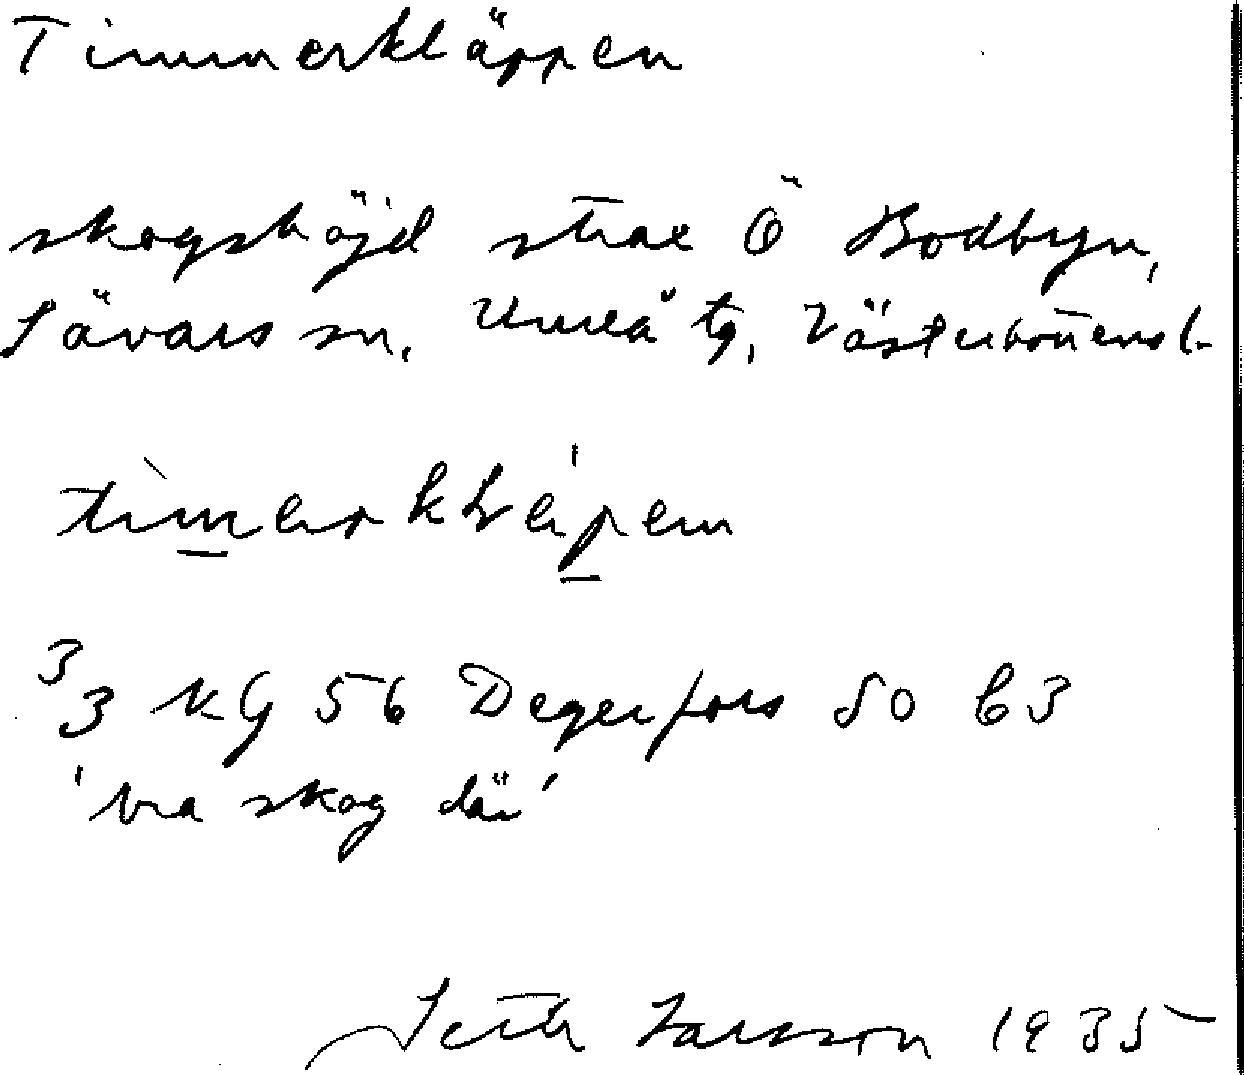 Timmerkläppen
skogshöjd strax Ö Bodbyn,
Sävars sn, Umeå tg, Västerbottens l.
3 3 KG 56 Degerfors SO b3
'bra skog där'
Seth Larsson 1935